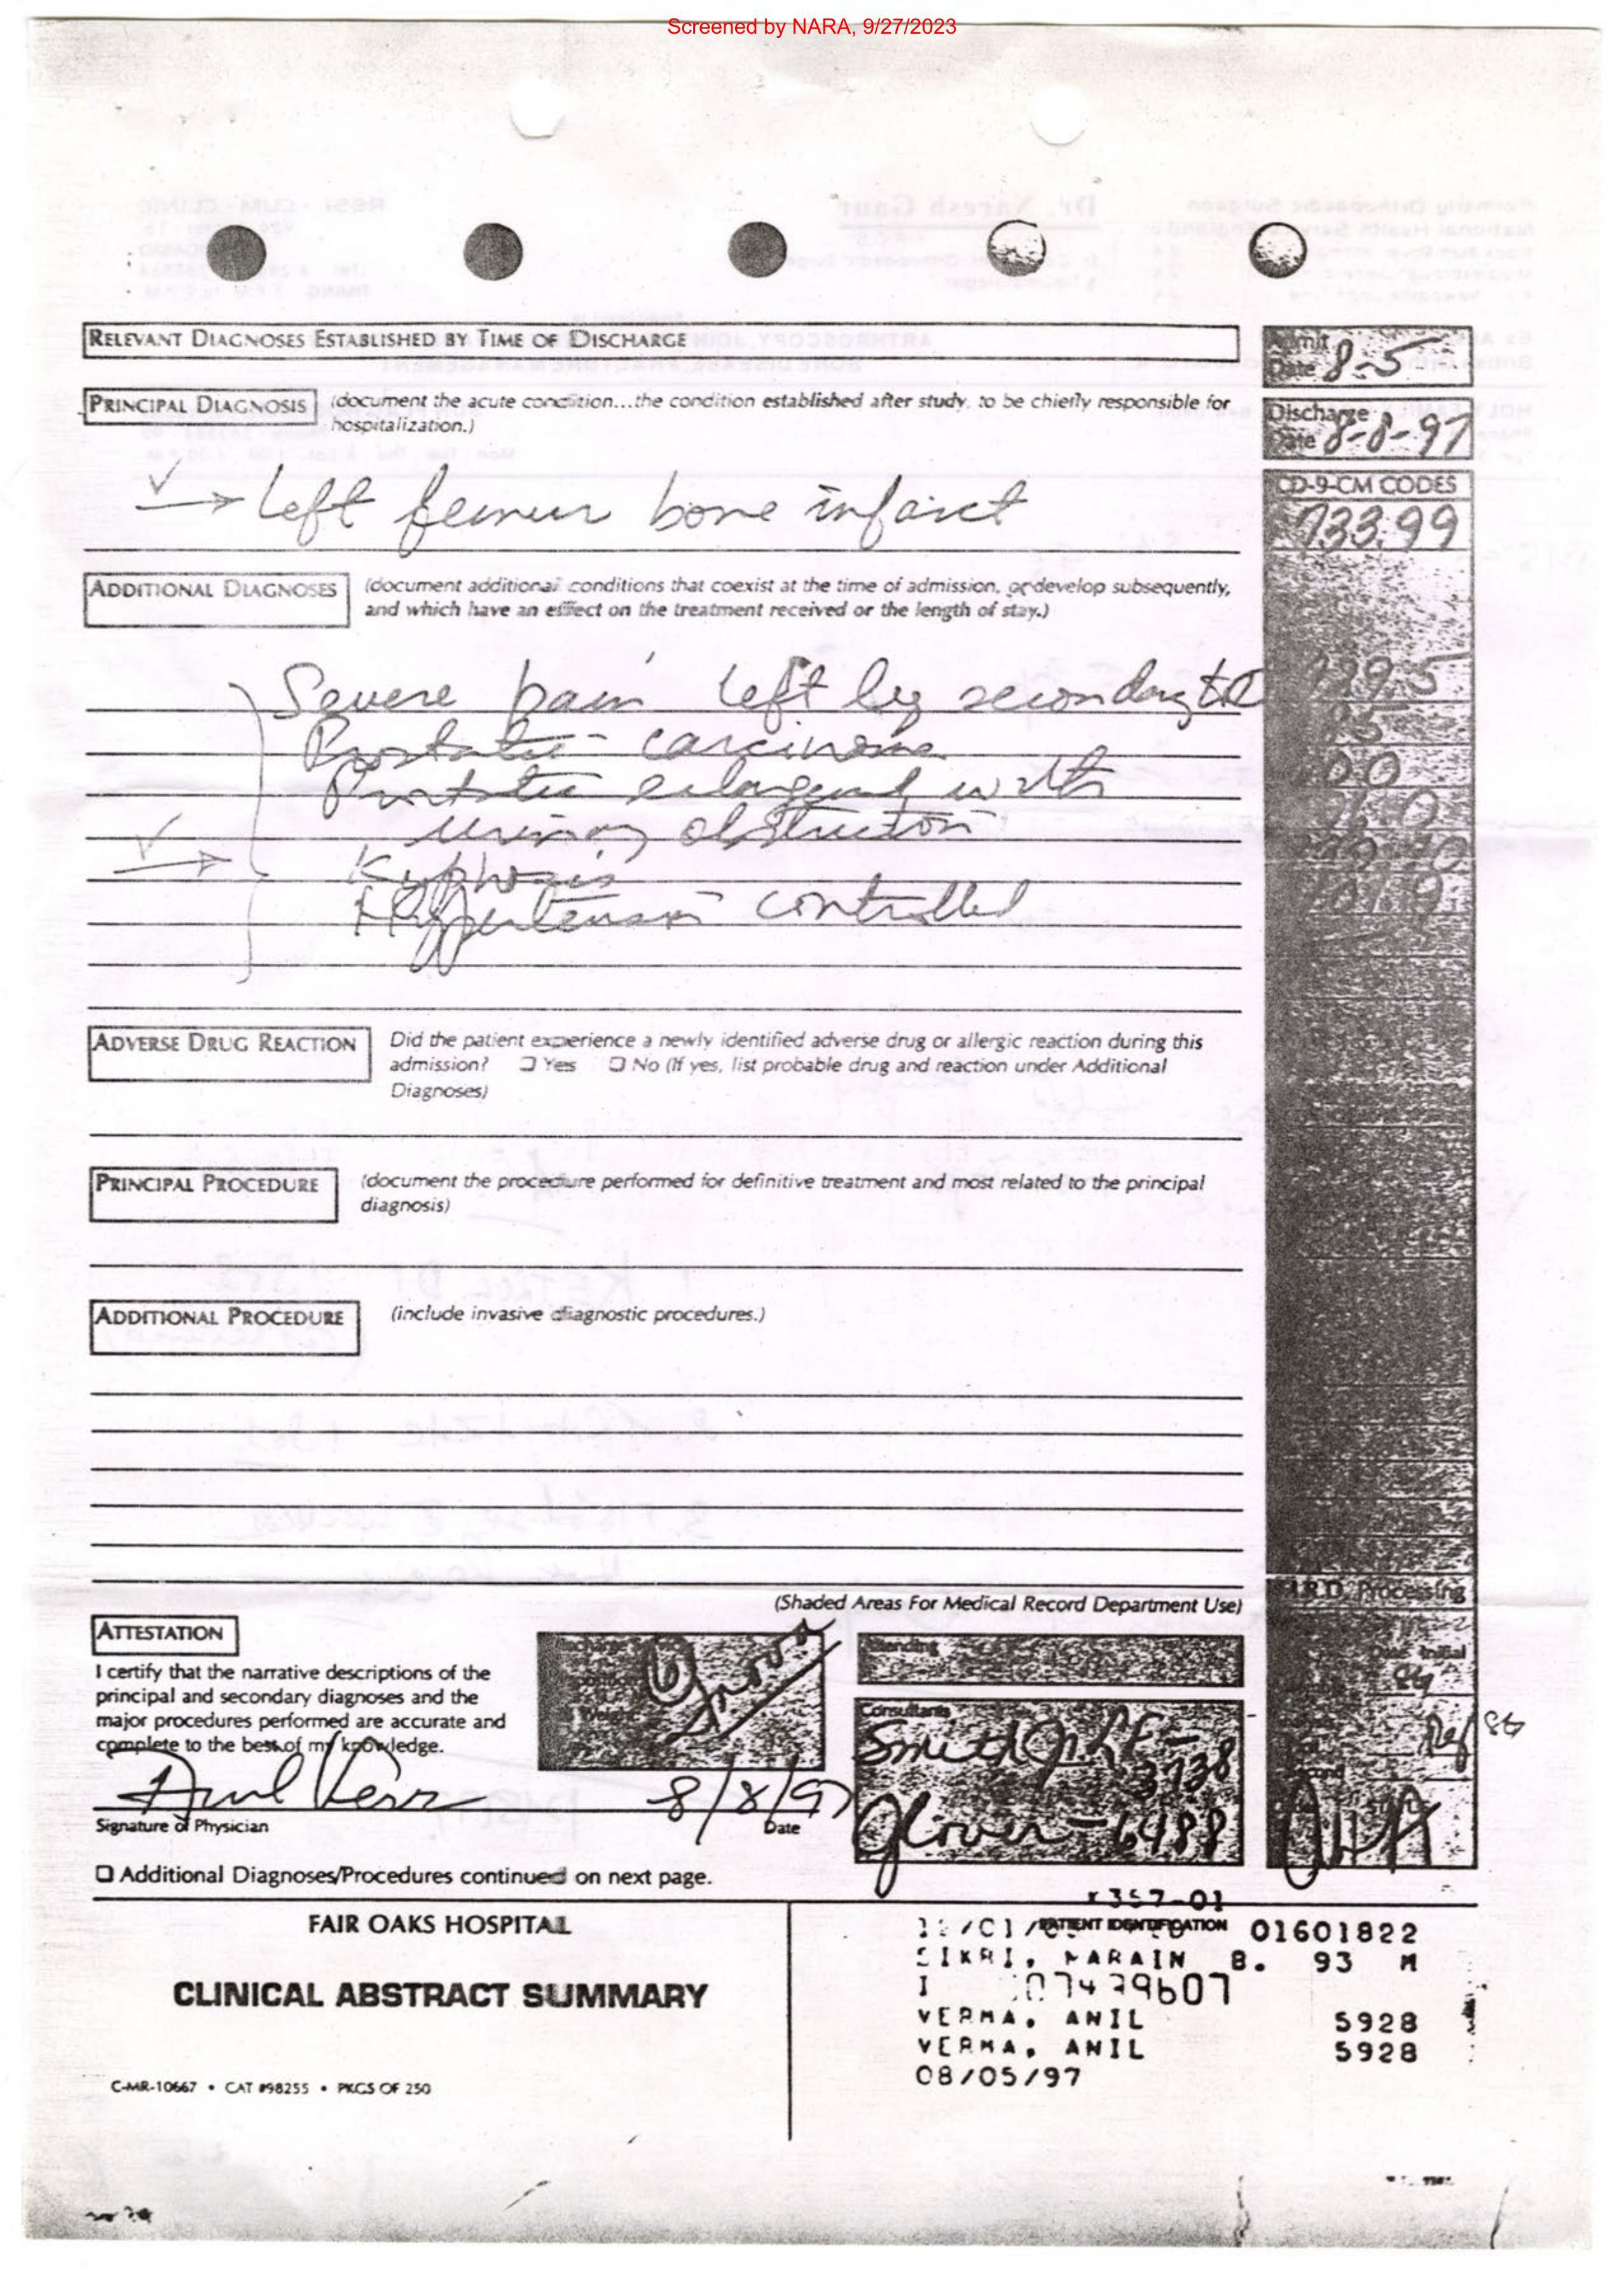 Screened by NARA, 9/27/2023
RELEVANT DIAGNOSES ESTABLISHED BY TIME OF DISCHARGE
Admit Date 8-5
PRINCIPAL DIAGNOSIS (document the acute condition...the condition established after study, to be chiefly responsible for
hospitalization.)
Discharge Date 8-8-97
CD-9-CM CODES
→ Left femur bone infarct
733.99
ADDITIONAL DIAGNOSES (document additional conditions that coexist at the time of admission, or develop subsequently,
and which have an effect on the treatment received or the length of stay.)
Severe pain left leg secondary to
Prostatic carcinoma
Prostatic enlargement with
urinary obstruction
Kyphosis
Hypertension controlled
ADVERSE DRUG REACTION Did the patient experience a newly identified adverse drug or allergic reaction during this
admission? ☐ Yes ☐ No (If yes, list probable drug and reaction under Additional
Diagnoses)
PRINCIPAL PROCEDURE (document the procedure performed for definitive treatment and most related to the principal
diagnosis)
ADDITIONAL PROCEDURE (include invasive diagnostic procedures.)
(Shaded Areas For Medical Record Department Use)
M.R.D. Processing
ATTESTATION
I certify that the narrative descriptions of the
principal and secondary diagnoses and the
major procedures performed are accurate and
complete to the best of my knowledge.
Attending
Consultants
Smith 3738
Glover - 6488
8/8/97
Signature of Physician Date
☐ Additional Diagnoses/Procedures continued on next page.
FAIR OAKS HOSPITAL
CLINICAL ABSTRACT SUMMARY
C-MR-10667 • CAT #98255 • PKGS OF 250
357-01
PATIENT IDENTIFICATION 01601822
SIKRI, NARAIN B. 93 M
I 07479607
VERMA, ANIL 5928
VERMA, ANIL 5928
08/05/97